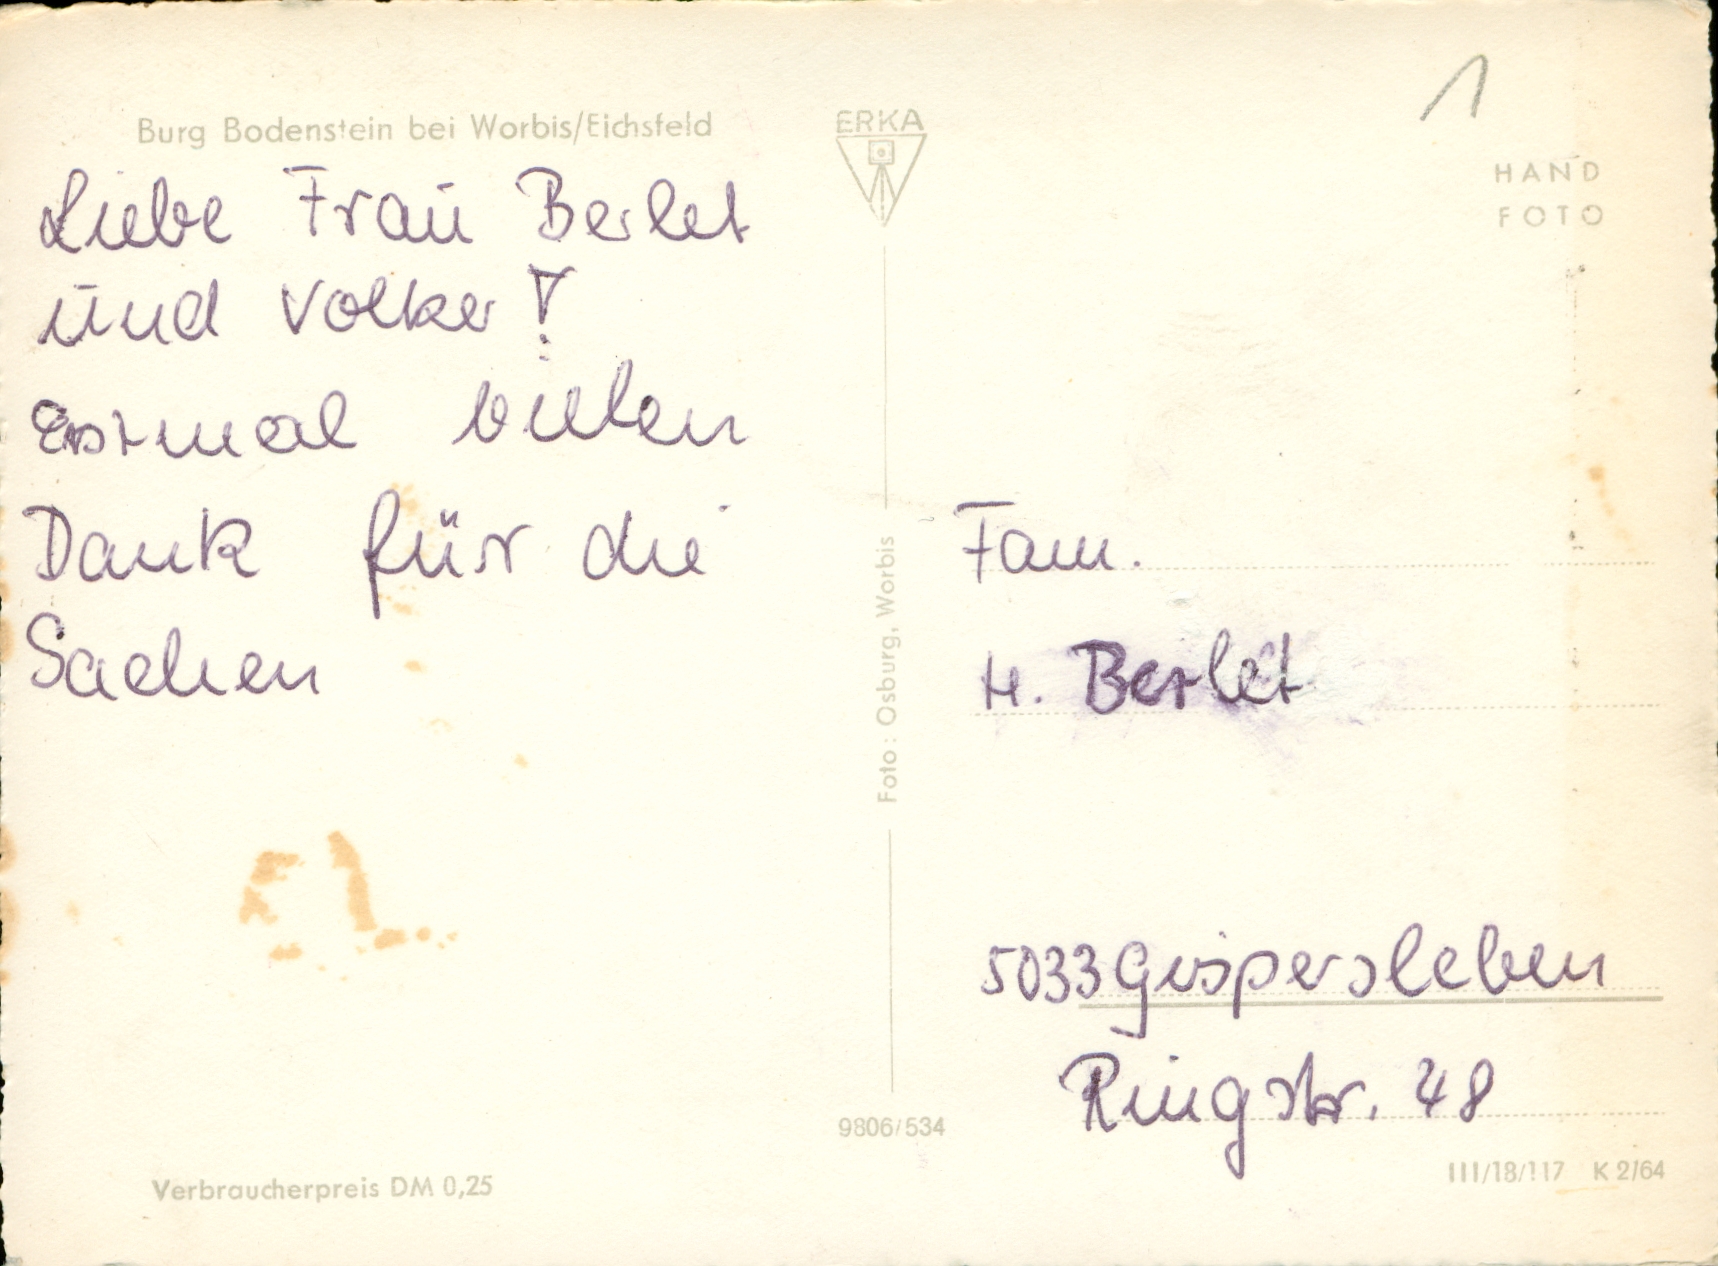 Burg Bodenstein bei Worbis/Eichsfeld
Liebe Frau Berlet
und Volker!
Erstmal vielen
Dank für die
Sachen
Verbraucherpreis DM 0,25
ERKA
Foto: Osburg, Worbis
9806/534
1
HAND
FOTO
Fam.
H. Berlet
5033 Gispersleben
Ringstr. 48
III/18/117 K 2/64